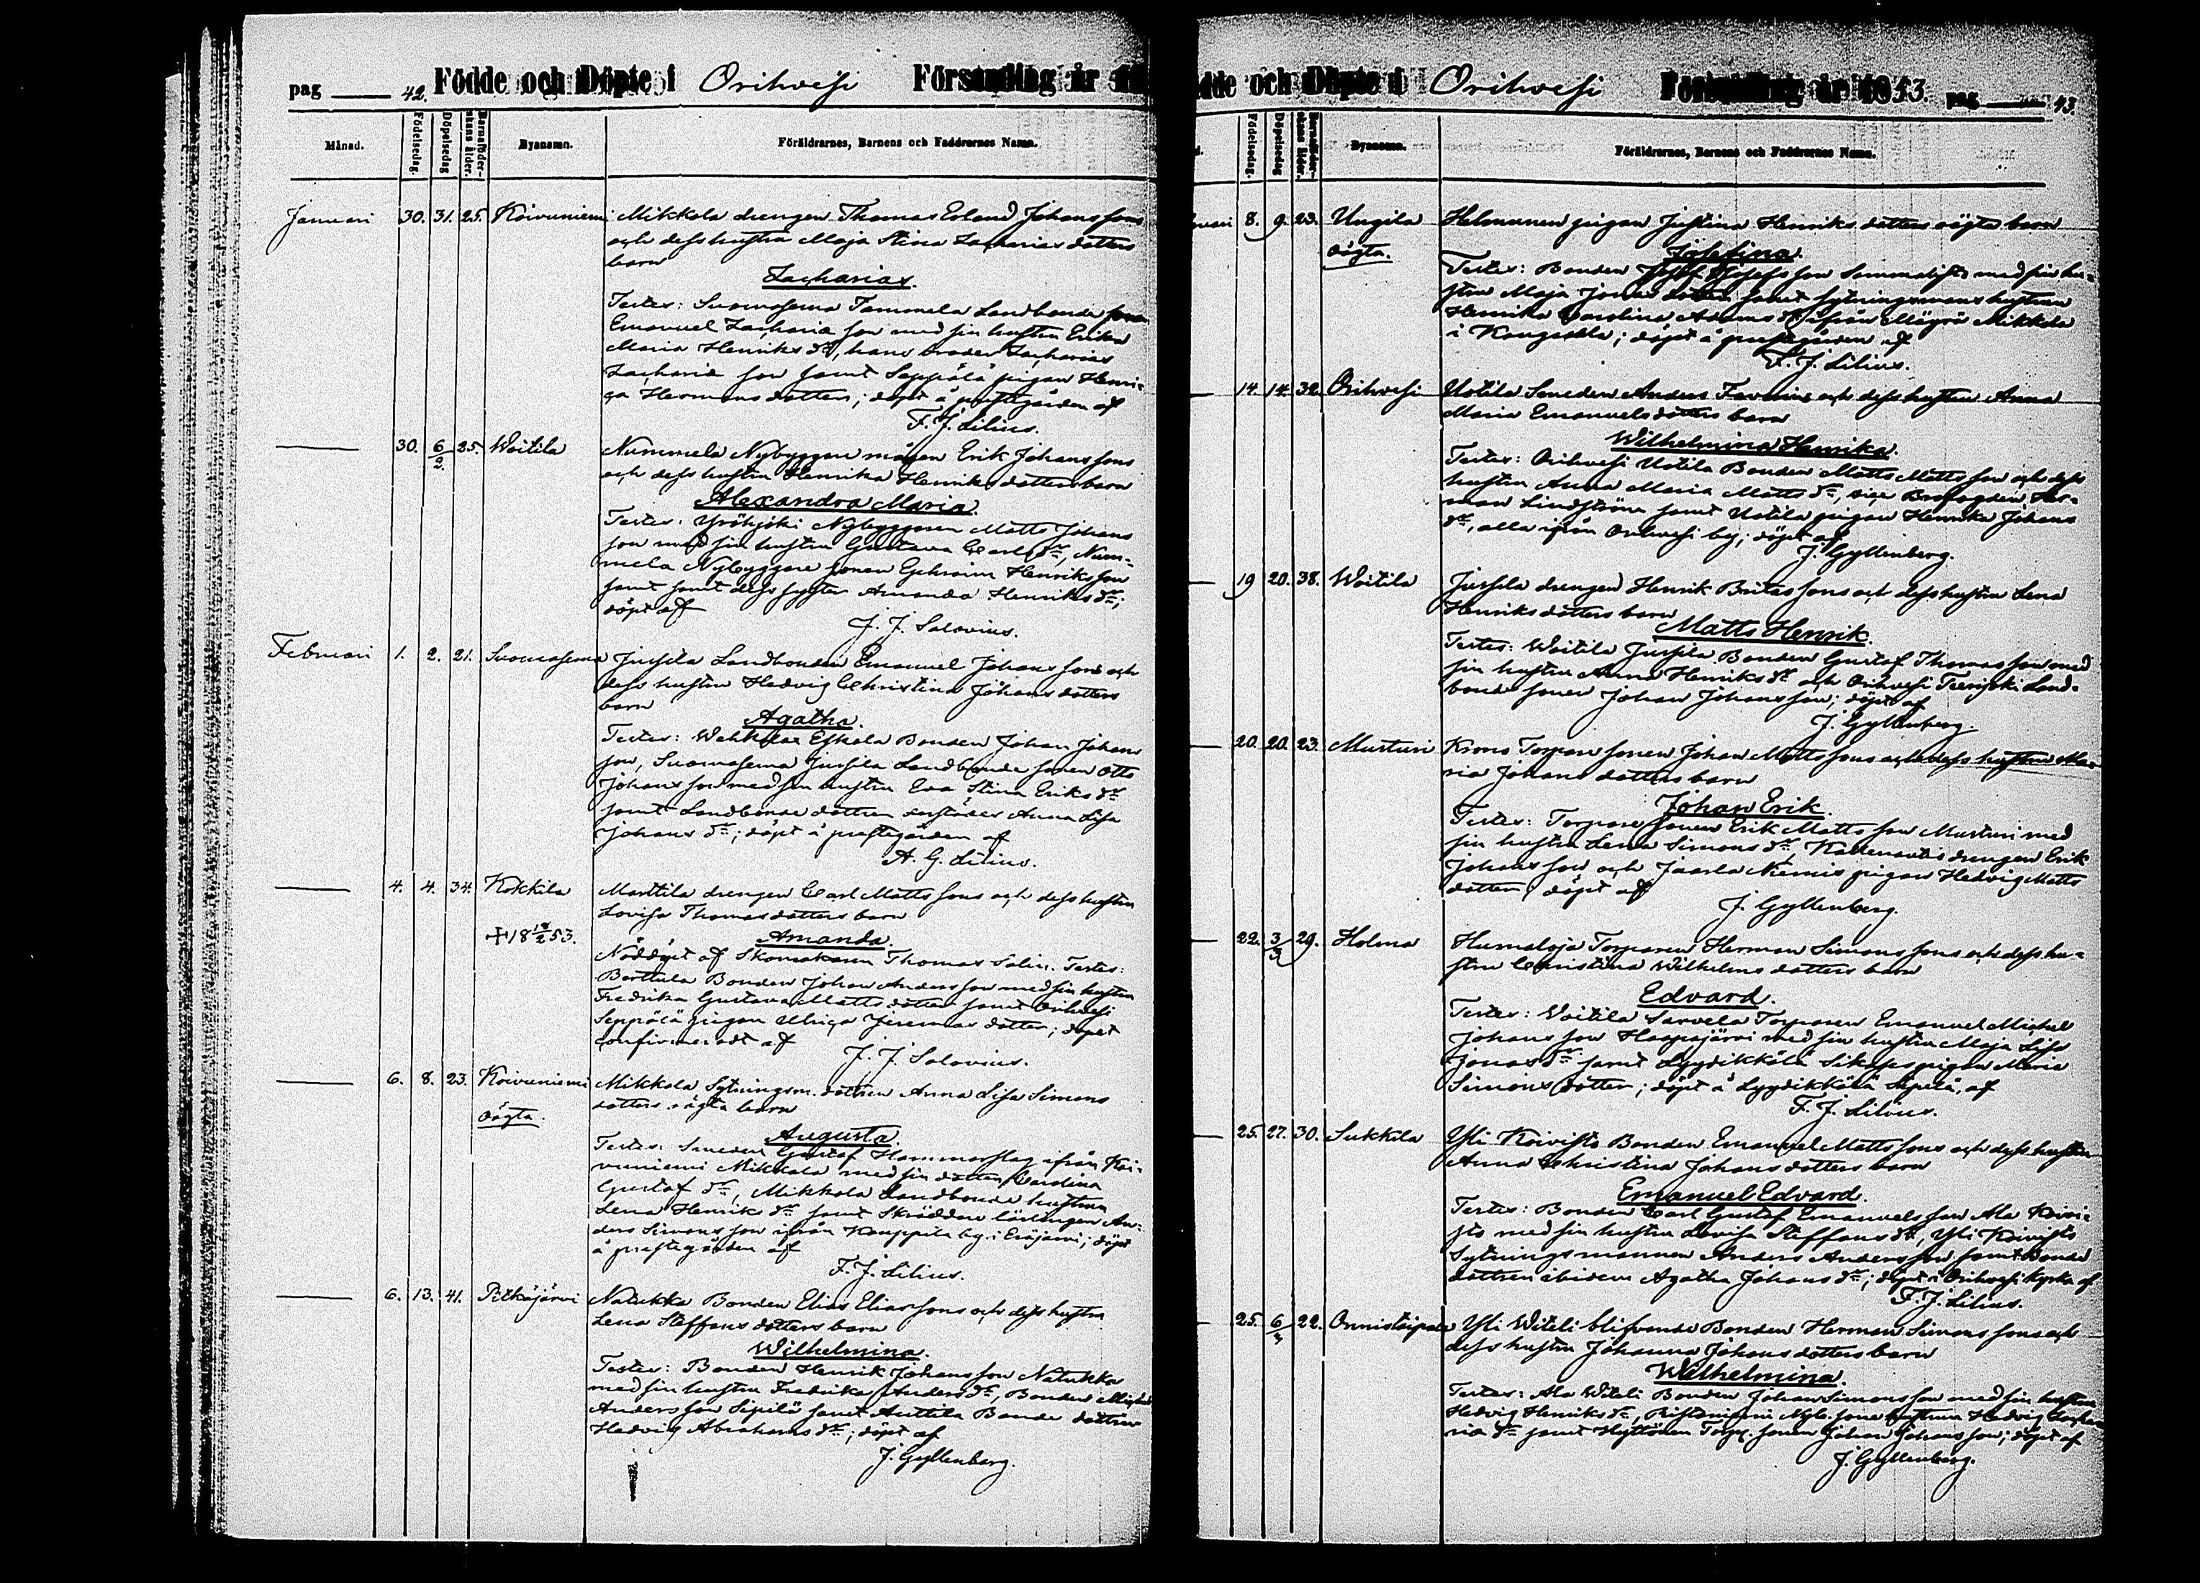 pag 42. Födde och Döpte i Orihvesi Församling år 18
Månad. Födelsedag. Döpelsedag Barnaföderskans ålder. Byanamn. Föräldrarnes, Barnens och Faddrarnes Namn.
Januari 30. 31. 25. Koivuniemi Mikkola drengen Thomas Erland Johans sons
och dess hustru Maja Stina Zacharias dotters
barn
Zacharias.
Testes: Suomasema Tammela Landbonde sonen
Emanuel Zacharia son med sin hustru Erika
Maria Henriks dr, hans broder Zacharias
Zacharia son samt Seppälä pigan Henri-
ca Hermans dotter; döpt å prestegården af
F. J. Lilius.
30. 6/2 25. Woitila Nummela Nybyggare mågen Erik Johans sons
och dess hustru Henrika Henriks dotters barn
Alexandra Maria.
Testes: Yröhjöki Nybyggaren Matts Johans
son med sin hustru Gustava Carls dr, Num-
mela Nybyggare sonen Ephraim Henriks son
samt dess syster Amanda Henriks dr;
döpt af
J. J. Salovius.
Februari 1. 2. 21. Suomasema Jussila Landbonden Emanuel Johans sons och
dess hustru Hedvig Christina Johans dotters
barn
Agatha.
Testes: Wehkalax Eskola Bonden Johan Johans
son, Suomasema Jussila Landbonde sonen Otto
Johans son med sin hustru Eva Stina Eriks dr
samt Landbonde dottren derstädes Anna Lisa
Johans dr; döpt å prestegården af
A. G. Lilius.
4. 4. 34. Kokkila Marttila drengen Carl Matts sons och dess hustru
Lovisa Thomas dotters barn
✝ 18 18/2 53. Amanda.
Nöddöpt af Skomakaren Thomas Salin. Testes:
Berttula Bonden Johan Anders son med sin hustru
Fredrika Gustava Matts dotter samt Orihvesi
Seppälä pigan Ulrica Jeremias dotter; döpet
confirmeradt af
J. J. Salovius.
6. 8. 23. Koivuniemi Mikkola Sytningsm. dottren Anna Lisa Simons
dotters oägta barn
oägta.
Augusta.
Testes: Smeden Gustaf Hammarslag ifrån Koi-
vuniemi Mikkola med sin dotter Carolina
Gustaf dr, Mikkola Landbonde hustrun
Lena Henriks dr samt Skräddare lärlingen An-
ders Simons son ifrån Kauppila by i Eräjärvi; döpt
å prestegården af
F. J. Lilius.
6. 13. 41. Pitkäjärvi Natukka Bonden Elias Elias sons och dess hustru
Lena Steffans dotters barn
Wilhelmina.
Testes: Bonden Henrik Johans son Natukka
med sin hustru Fredrika Anders dr, Bonden Michel
Anders son Sipilä samt Anttila Bonde dottren
Hedvig Abrahams dr; döpt af
J. Gyllenberg.
Födde och Döpte i Orihvesi Församling år 1853. pag 43.
Födelsedag. Döpelsedag Barnaföderskans ålder. Byanamn. Föräldrarnes, Barnens och Faddrarnes Namn.
8. 9. 23. Uugila Helmanen pigan Justina Henriks dotters oägta barn
oägta.
Josefina.
Testes: Bonden Josef Josefs son med sin hu-
stru Maja Jonas dotter samt sytningsmans hustrun
Henrika Carolina Adams dr ifrån Mikkola
i Kangasala; döpt å prestegården af
F. J. Lilius.
14. 14. 32. Orihvesi Uotila Smeden Anders och dess hustru Anna
Maria Emanuels dotters barn
Wilhelmina Henrika.
Testes: Orihvesi Uotila Bonden Matts Matts son och dess
hustru Anna Maria Matts dr, vice Brofogden Her-
man Lindström samt Uotila pigan Henrika Johans
dr, alla ifrån Orihvesi by; döpt af
J. Gyllenberg.
19 20. 38. Woitila Jussila drengen Henrik Britas sons och dess hustru Lena
Henriks dotters barn
Matts Henrik.
Testes: Woitila Jussila Bonden Gustaf Thomas son med
sin hustru Anna Henriks dr och Orihvesi Land-
bonde sonen Johan Johans son; döpt af
J. Gyllenberg.
20. 20. 23. Musturi Krono Torpare sonen Johan Matts sons och dess hustru Ma-
ria Johans dotters barn
Johan Erik.
Testes: Torpare sonen Erik Matts son Musturi med
sin hustru Lena Simons dr, drengen Erik
Johans son och Jaarla Niemis pigan Hedvig Matts
dotter, döpt af
J. Gyllenberg.
22. 3/3 29. Holma Humaloja Torparen Herman Simons sons och dess hu-
stru Christina Wilhelms dotters barn
Edvard.
Testes: Woitila Sarvela Torparen Emanuel Michel
Johans son Haapajärvi med sin hustru Maja Lisa
Jonas dr samt Lyydikkälä pigan Maria
Simons dotter; döpt å Lyydikkälä Sipilä, af
F. J. Lilius.
25. 27. 30. Sukkila Yli Koivisto Bonden Emanuel Matts sons och dess hustru
Anna Christina Johans dotters barn
Emanuel Edvard.
Testes: Bonden Carl Gustaf Emanuels son Ala Koivi-
sto med sin hustru Lovisa Steffans dr, Yli Koivisto
Sytningsmannen Anders Anders son samt Bonde
dottren ibidem Agatha Johans dr; döpt i Orihvesi kyrka af
F. J. Lilius.
25. 6/3 22. Onnistaipale Yli Witeli blifvande Bonden Herman Simons sons och
dess hustru Johanna Johans dotters barn
Wilhelmina.
Testes: Ala Witeli Bonden Johan Simons son med sin hustru
Hedvig Henriks dr, Nyb. sone hustrun Hedvig Zacha-
ria dr samt Torp. sonen Johan Johans son; döpt af
J. Gyllenberg.